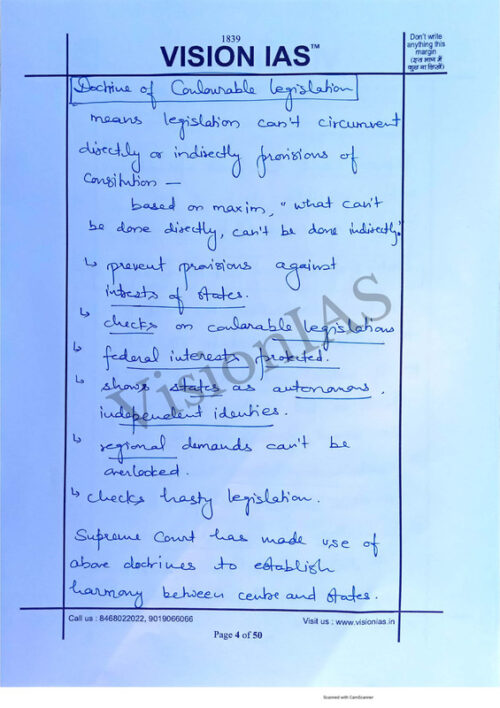 1839
VISION IAS™
Don't write
anything this
margin
(इस भाग में
कुछ ना लिखें)
Doctrine of Coulourable legislation
means legislation can't circumvent
directly or indirectly provisions of
Consitution —
based on maxim, "what can't
be done directly, can't be done indirectly."
↳ prevent provisions against
intersts of states.
↳ checks on coularable legislations
↳ federal interests protected.
↳ shows states as autonomous,
independent identies.
↳ regional demands can't be
overlooked.
↳ checks hasty legislation.
Supreme Court has made use of
above doctrines to establish
harmony between centre and states.
VisionIAS
Call us : 8468022022, 9019066066
Visit us : www.visionias.in
Page 4 of 50
Scanned with CamScanner